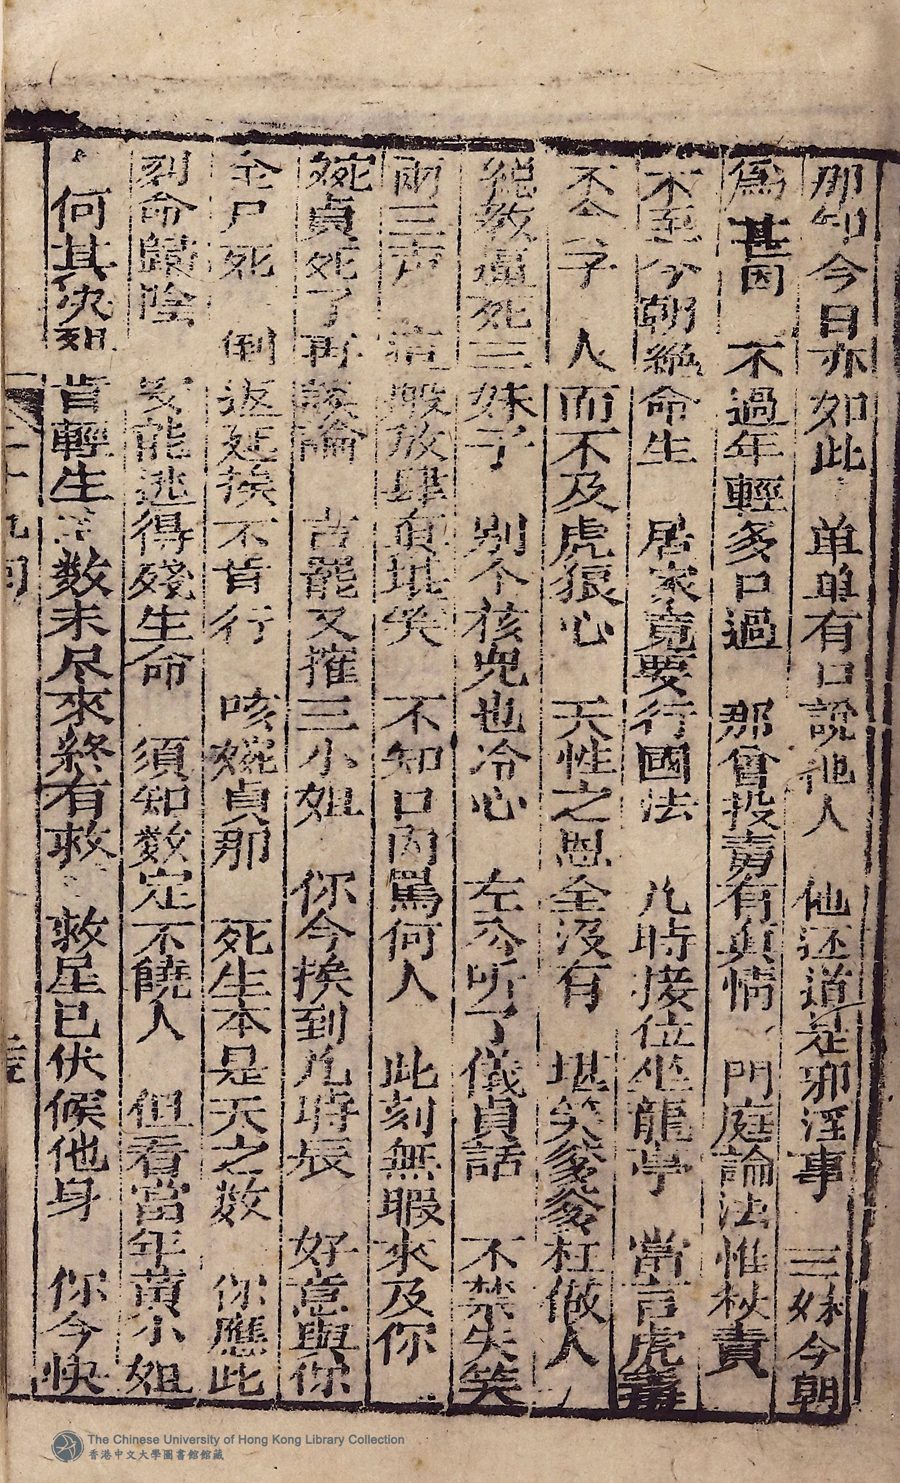 那知今日亦如此 单单有口說他人 他还道是邪淫事 三妹今朝
為甚因 不過年輕多口過 那會投賣有真情 門庭論法惟杖責
不至今朝絶命生 居家竟要行國法 几時接位坐龍亭 當言虎毒
不食子 人而不及虎狼心 天性之恩全没有 堪笑爹爹枉做人
縱教逼死三妹子 别个核兇也冷心 左丞听了儀貞話 不禁失笑
兩三声 這般放肆真堪笑 不知口内罵何人 此刻無暇來及你
婉貞死了再談論 言罷又摧三小姐 你今挨到几時辰 好意與你
全尸死 倒返延挨不肯行 咳婉貞那 死生本是天之数 你應此
刻命歸陰 岂能逃得殘生命 須知数定不饒人 但看當年黄小姐
何其决烈肯輕生 数未尽來終有救 救星已伏候他身 你今快
十九囘